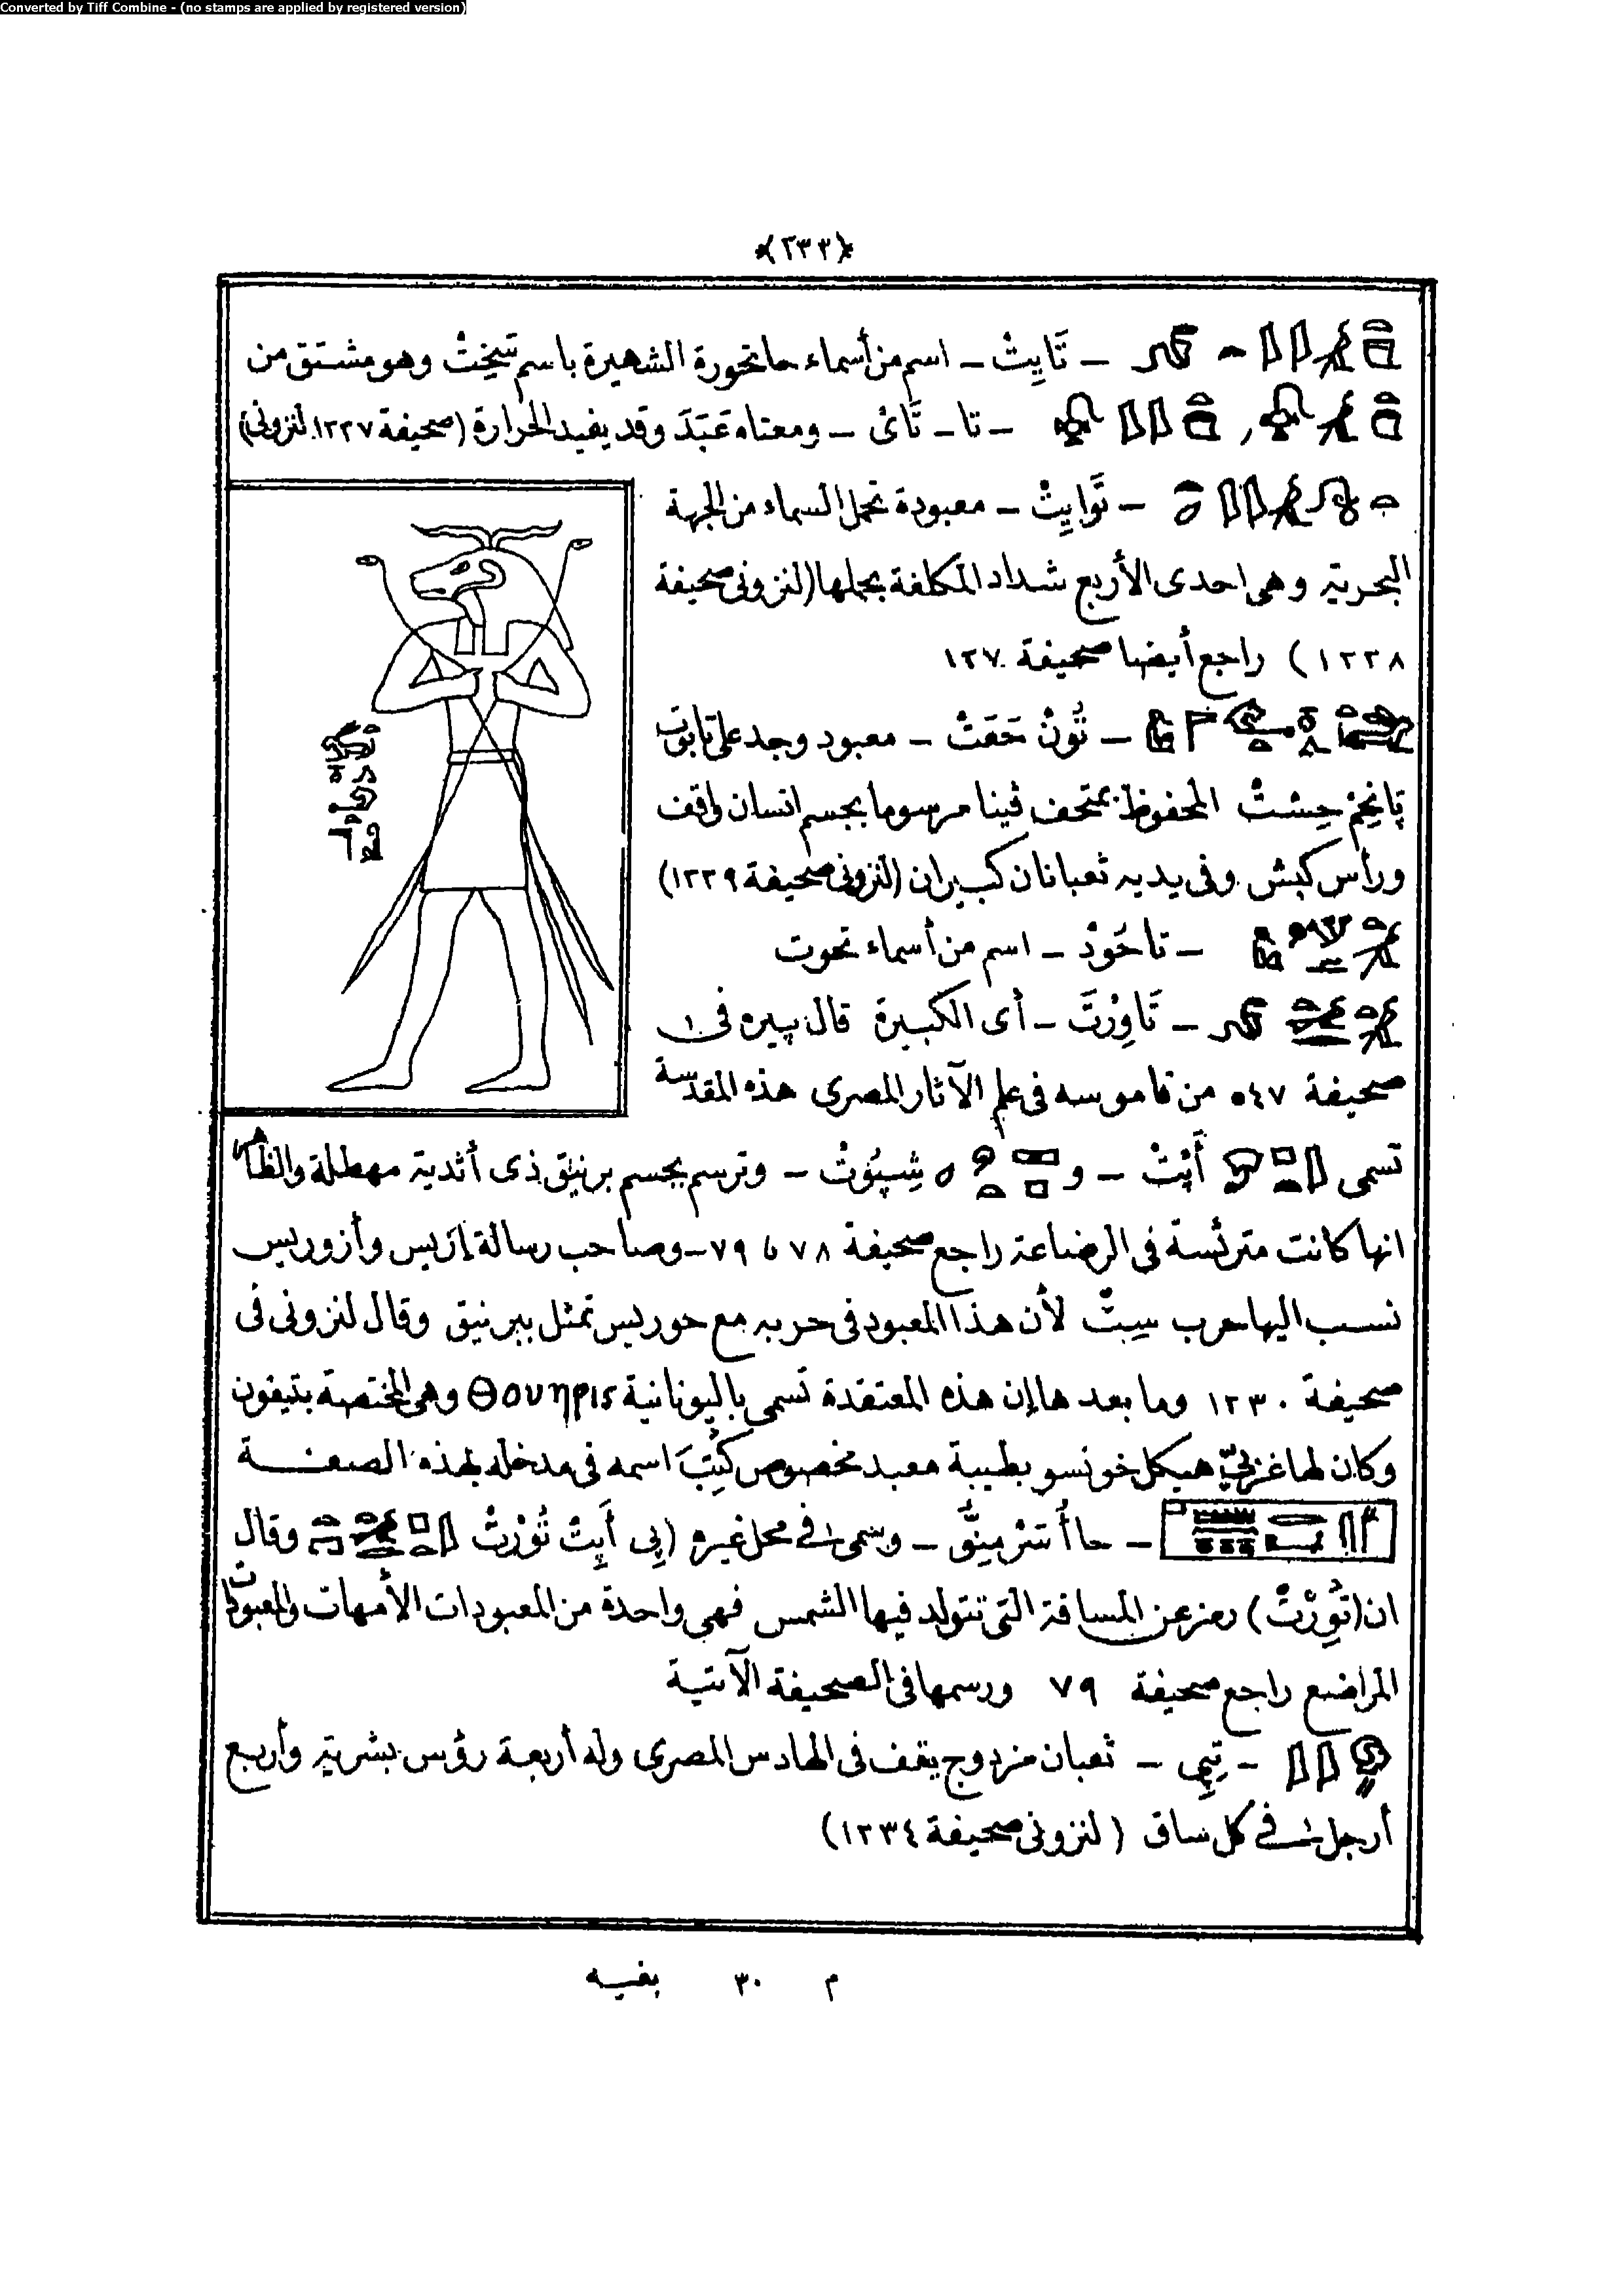 Converted by Tiff Combine - (no stamps are applied by registered version)
﴿٢٣٣﴾
– تَايِتْ – اسم من أسماء حاتحورة الشهيرة باسم سَخِتْ وهو مشتق من
– تا – تَاىْ – ومعناه عَبَدَ وقد يفيد الحرارة (صحيفة ١٢٢٧ لنزونى)
– تَوَايِتْ – معبودة تحمل السماء من الجهة
البحرية وهى احدى الأربع شداد المكلفة بحملها (لنزونى صحيفة
١٢٢٨) راجع أيضا صحيفة ١٢٧
– تُونْ حَعَتْ – معبود وجد على تابوت
پانِحِمْ حِسِتْ المحفوظ بمتحف ڤينا مرسوما بجسم انسان واقف
ورأس كبش وفى يديه ثعبانان كبيران (لنزونى صحيفة ١٢٢٩)
– تاخُودْ – اسم من أسماء تحوت
– تَاوِرْتَ – أى الكبيرة قال پيره فى
صحيفة ٥٤٧ من قاموسه فى علم الآثار المصرى هذه المقدسة
تسمى أَپْتْ – و شِپُوتْ – وترسم بجسم برنيق ذى أثدية مهطلة والظاهر
انها كانت مترئسة فى الرضاعة راجع صحيفة ٧٨ و ٧٩ – وصاحب رسالة إزيس وأزوريس
نسب اليها حرب سِتْ لأن هذا المعبود فى حربه مع حوريس تمثل ببرنيق وقال لنزونى فى
صحيفة ١٢٣٠ وما بعدها إن هذه المعتقدة تسمى باليونانية Θουηρις وهى المختصة بتيفون
وكان لها غربىّ هيكل خونسو بطيبة معبد مخصوص كُتِبَ اسمه فى مدخله بهذه الصفة
– حاأُسَرْمِنِقَّ – وسمى فى محل غيره (پى أَپِتْ تُوْرْتْ وقال
ان (تُوِرْتْ) رمز عن المسافة التى تتولد فيها الشمس فهى واحدة من المعبودات الأمهات والمعبودات
المراضع راجع صحيفة ٧٩ ورسمها فى الصحيفة الآتية
– تِپِى – ثعبان مزدوج يقف فى الهادس المصرى وله أربعة رؤس بشرية وأربع
أرجل فى كل ساق (لنزونى صحيفة ١٢٣٤)
م ٣٠ بغيه